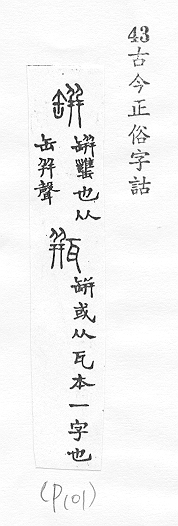 43古今正俗字詁
缾 缾罋也从
缶幷聲
瓶 缾或从瓦本一字也
(P101)